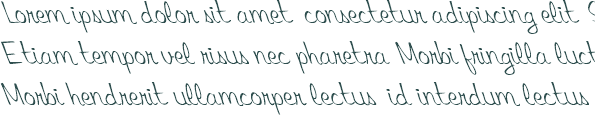 Lorem ipsum dolor sit amet consectetur adipiscing elit
Etiam tempor vel risus nec pharetra Morbi fringilla luct
Morbi hendrerit ullamcorper lectus id interdum lectus